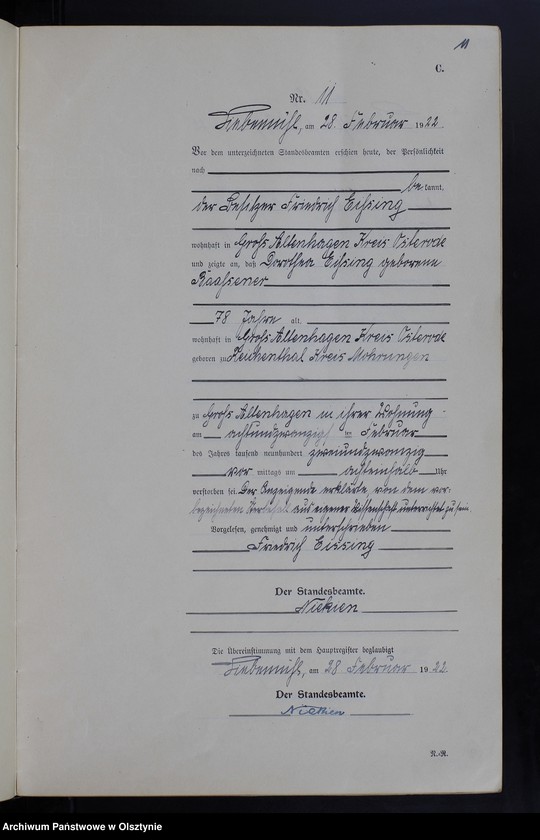 11
C.
Nr. 11
Liebemühl, am 28. Februar 1922
Vor dem unterzeichneten Standesbeamten erschien heute, der Persönlichkeit
nach
bekannt,
der Besitzer Friedrich Eissing
wohnhaft in Groß Altenhagen Kreis Osterode
und zeigte an, daß Dorothea Eissing geborene
78 Jahre alt,
wohnhaft in Groß Altenhagen Kreis Osterode
geboren zu Reichenthal Kreis Mohrungen
zu Groß Altenhagen in ihrer Wohnung
am achtundzwanzigsten Februar
des Jahres tausend neunhundert zweiundzwanzig
vor mittags am achteinhalb Uhr
verstorben sei. Der Anzeigende erklärte, von dem vor-
bezeichneten Sterbefall aus eigener Wissenschaft unterrichtet zu sein.
Vorgelesen, genehmigt und unterschrieben
Friedrich Eissing
Der Standesbeamte.
Die Übereinstimmung mit dem Hauptregister beglaubigt
Liebemühl, am 28 Februar 1922.
Der Standesbeamte.
N.-R.
Archiwum Państwowe w Olsztynie